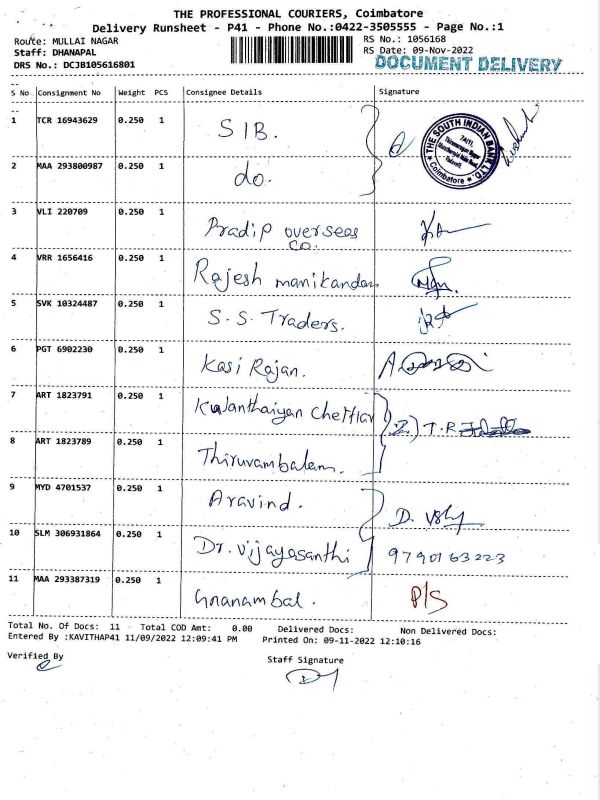 THE PROFESSIONAL COURIERS, Coimbatore
Delivery Runsheet - P41 - Phone No.:0422-3505555 - Page No.:1
Route: MULLAI NAGAR
RS No.: 1056168
Staff: DHANAPAL
RS Date: 09-Nov-2022
DRS No.: DCJB105616801
DOCUMENT DELIVERY
S No Consignment No Weight PCS Consignee Details Signature
1 TCR 16943629 0.250 1 SIB.
THE SOUTH INDIAN BANK LTD.
Coimbatore
2 MAA 293800987 0.250 1 do.
3 VLI 220709 0.250 1 Pradip overseas
co.
4 VRR 1656416 0.250 1 Rajesh manikandan
5 SVK 10324487 0.250 1 S.S. Traders.
6 PGT 6902230 0.250 1 Kasi Rajan.
7 ART 1823791 0.250 1 Kulanthaiyan Chettiar
2) T.R
8 ART 1823789 0.250 1 Thiruvambalam.
9 MYD 4701537 0.250 1 Aravind.
10 SLM 306931864 0.250 1 Dr. Vijayasanthi 9790163223
11 MAA 293387319 0.250 1 Gnanambal. P/S
Total No. Of Docs: 11 Total COD Amt: 0.00 Delivered Docs: Non Delivered Docs:
Entered By :KAVITHAP41 11/09/2022 12:09:41 PM Printed On: 09-11-2022 12:10:16
Verified By
Staff Signature